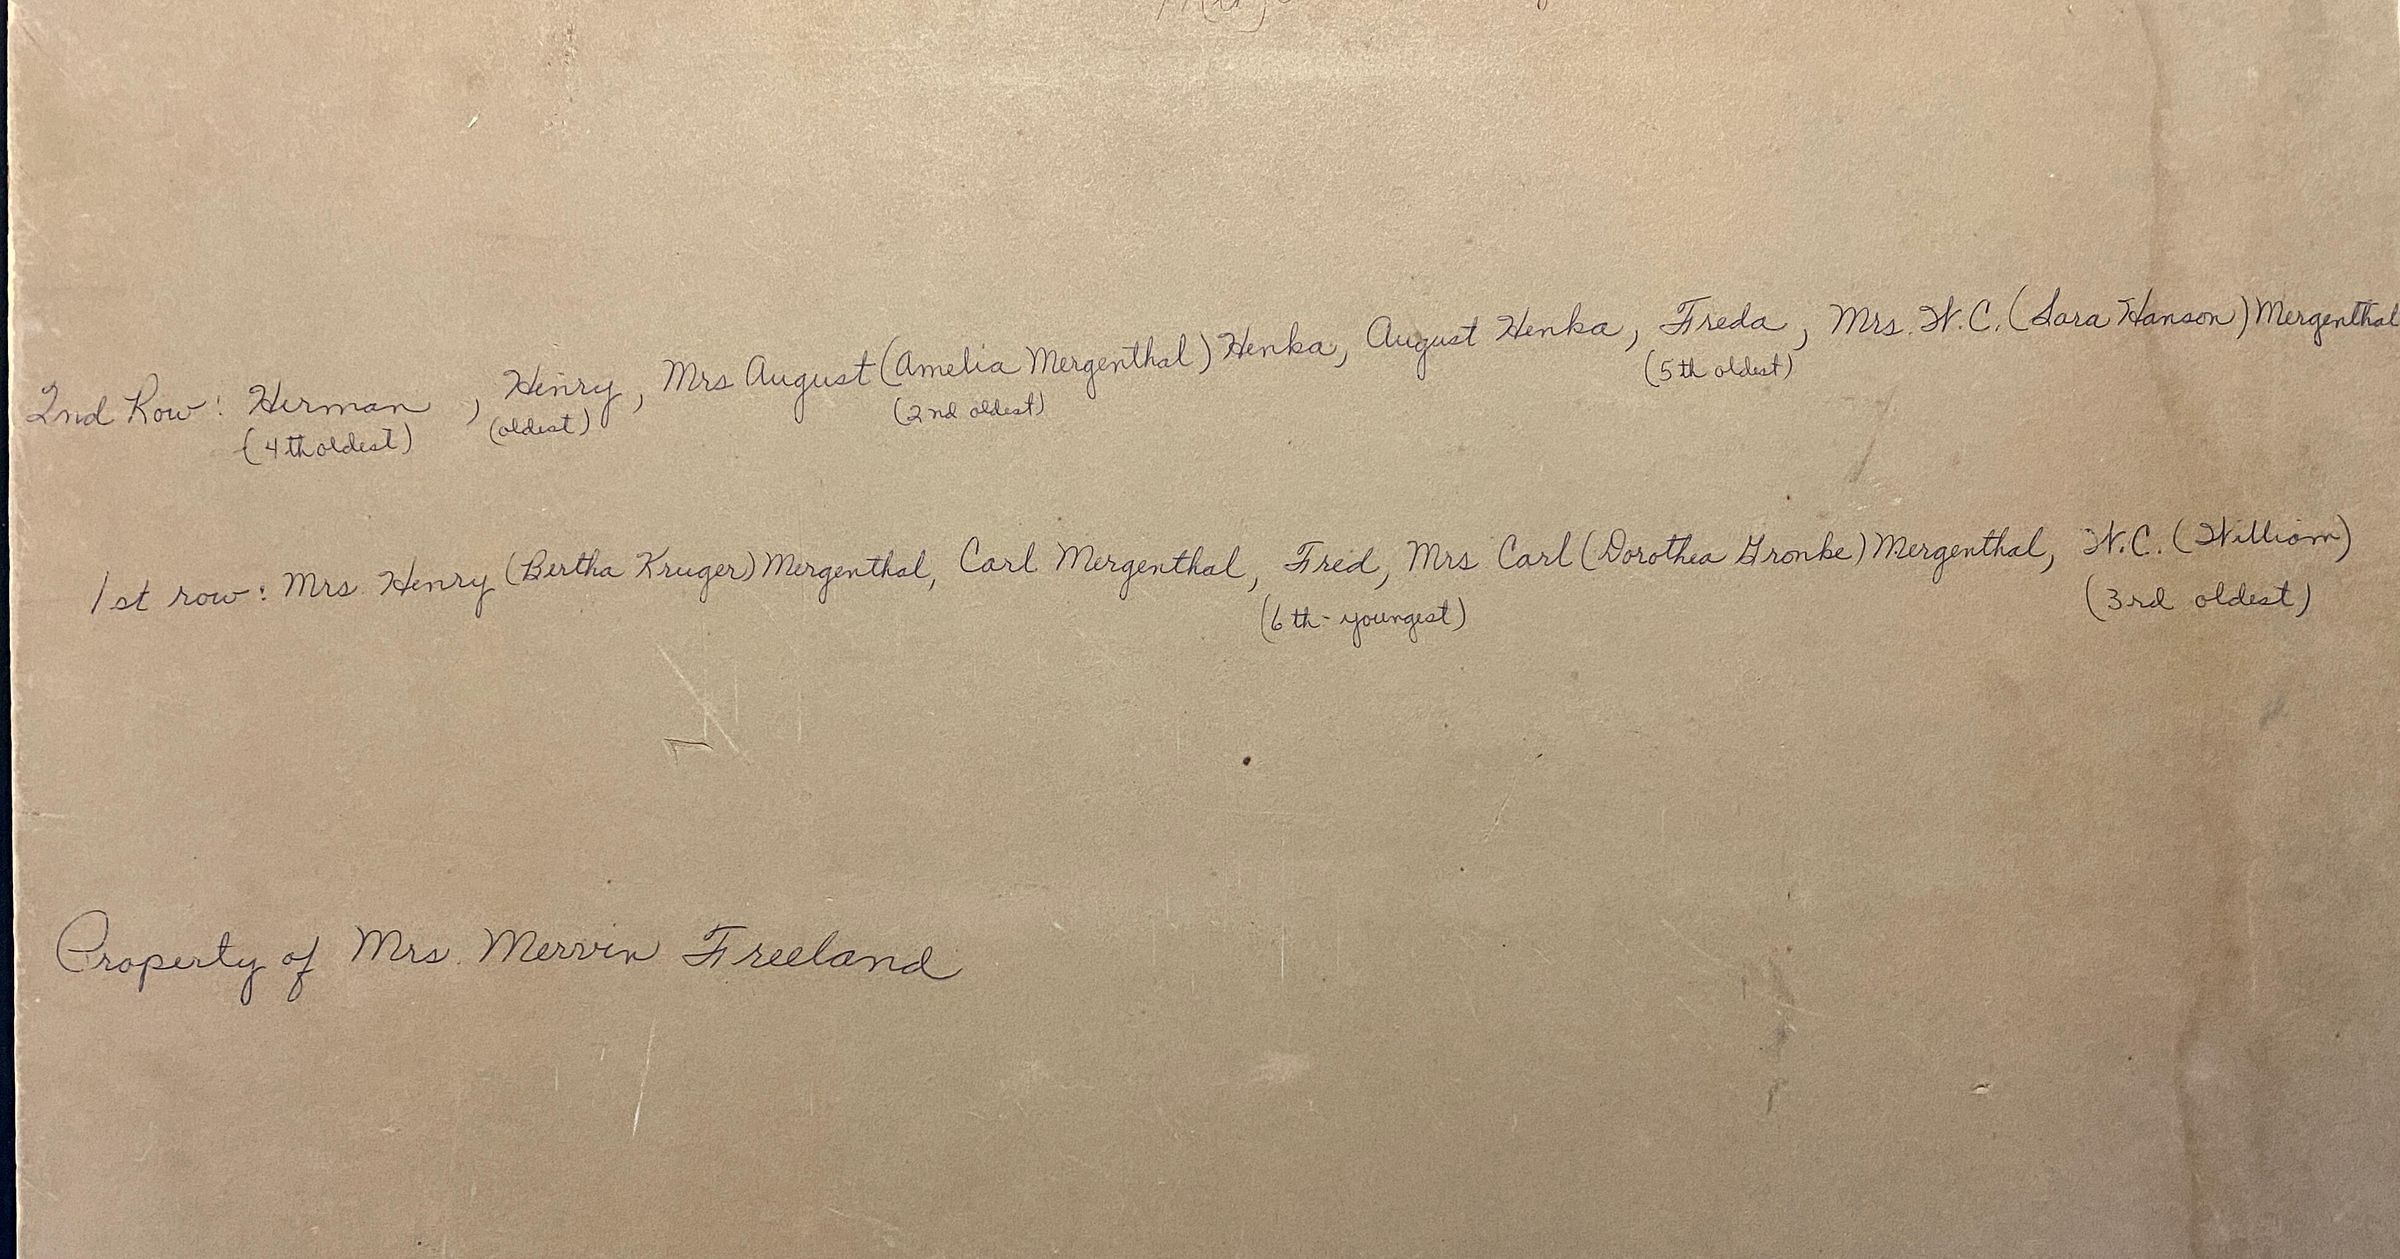 2nd Row: Herman, Henry, Mrs August (Amelia Mergenthal) Henka, August Henka, Freda, Mrs. W.C. (Sara Hanson) Mergenthal
(4th oldest) (oldest) (2nd oldest) (5th oldest)
1st row: Mrs Henry (Bertha Kruger) Mergenthal, Carl Mergenthal, Fred, Mrs Carl (Dorothea Gronke) Mergenthal, W.C. (William)
(6th - youngest) (3rd oldest)
Property of Mrs. Mervin Freeland